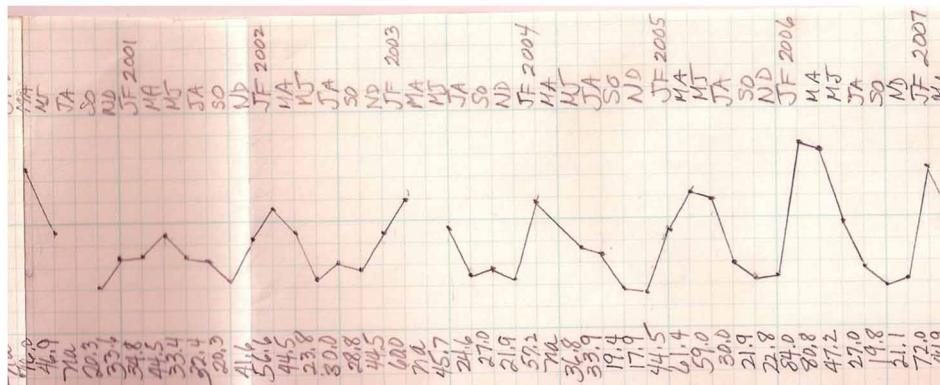 MA
MJ
JA
SO
ND
JF 2001
MA
MJ
JA
SO
ND
JF 2002
MA
MJ
JA
SO
ND
JF 2003
MA
MJ
JA
SO
ND
JF 2004
MA
MJ
JA
SO
ND
JF 2005
MA
MJ
JA
SO
ND
JF 2006
MA
MJ
JA
SO
ND
JF 2007
na
20.3
33.6
34.8
44.5
33.4
32.4
20.3
41.6
56.6
44.5
23.8
30.0
28.8
44.5
60.0
na
45.7
24.6
27.0
21.9
57.2
na
36.8
33.9
19.4
17.9
44.5
61.4
59.0
30.0
21.9
22.8
84.0
80.8
47.2
27.0
19.8
21.1
72.0